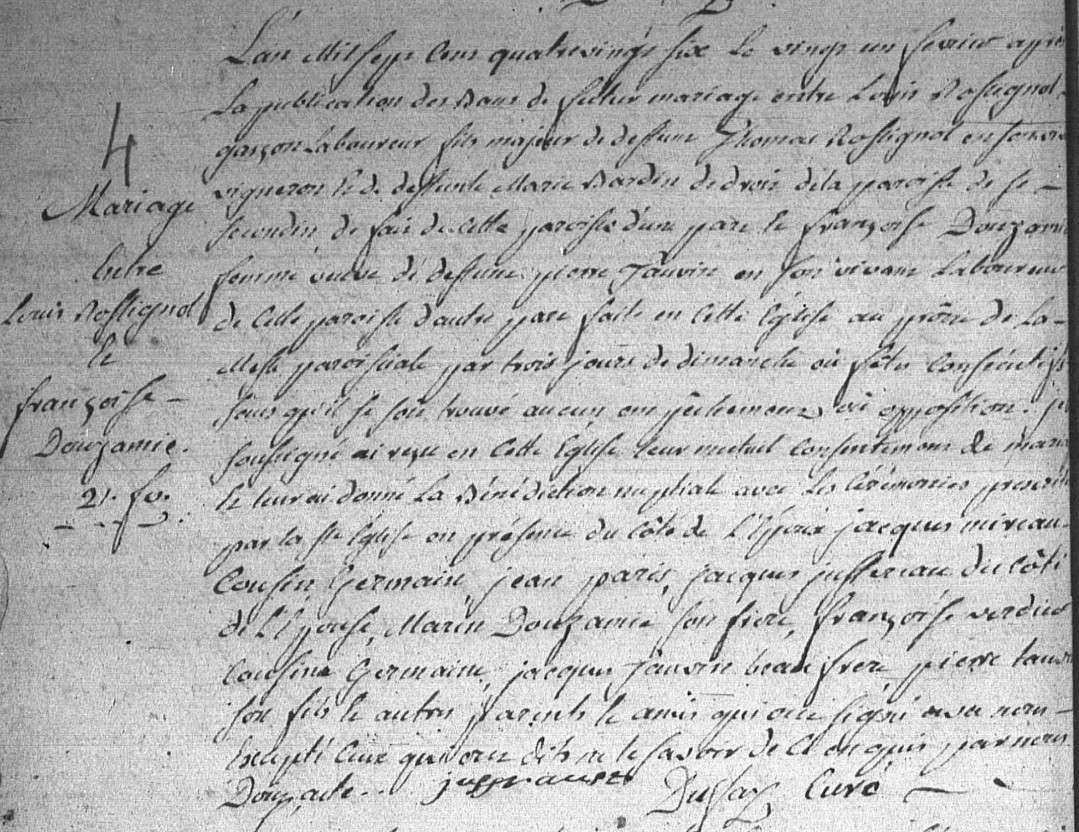 L'an Mil Sept Cens quatrevingt six le vingt un fevrier après
la publication des Bans de futur mariage entre Louis Rossignol
garçon Laboureur fils majeur de deffunt Thomas Rossignol en son vivant
4
vigneron & de deffunte Marie Bardin de droit de la paroisse de St
Mariage
Secondin de fait de cette paroisse d'une part & françoise Douzamie
Entre
femme veuve de deffunt pierre Tauvin en son vivant Laboureur
Louis Rossignol
de cette paroisse d'autre part faite en cette Eglise au prône de La
&
Messe paroissiale par trois jours de dimanche ou fêtes Consécutifs
françoise
sans qu'il se soit trouvé aucun empêchement ou opposition. je
Douzamie.
soussigné ai reçu en cette Eglise leur mutuel Consentement de mariage
21. fev.
& leur ai donné La Bénédiction nuptiale avec les Cérémonies prescrites
par la Ste Eglise en présence du côté de L'Epoux jacques mireau
Cousin Germain, jean paris, jacques jussereau du côté
de L'Epouse, Marin Douzamie son frere, françoise verdier
Cousine Germaine, jacques Tauvin beaufrere pierre tauvin
son fils & autres parents & amis qui ont signé avec nous
Excepté Ceux qui ont dit ne le savoir de ce enquis par nous
Dussay Curé